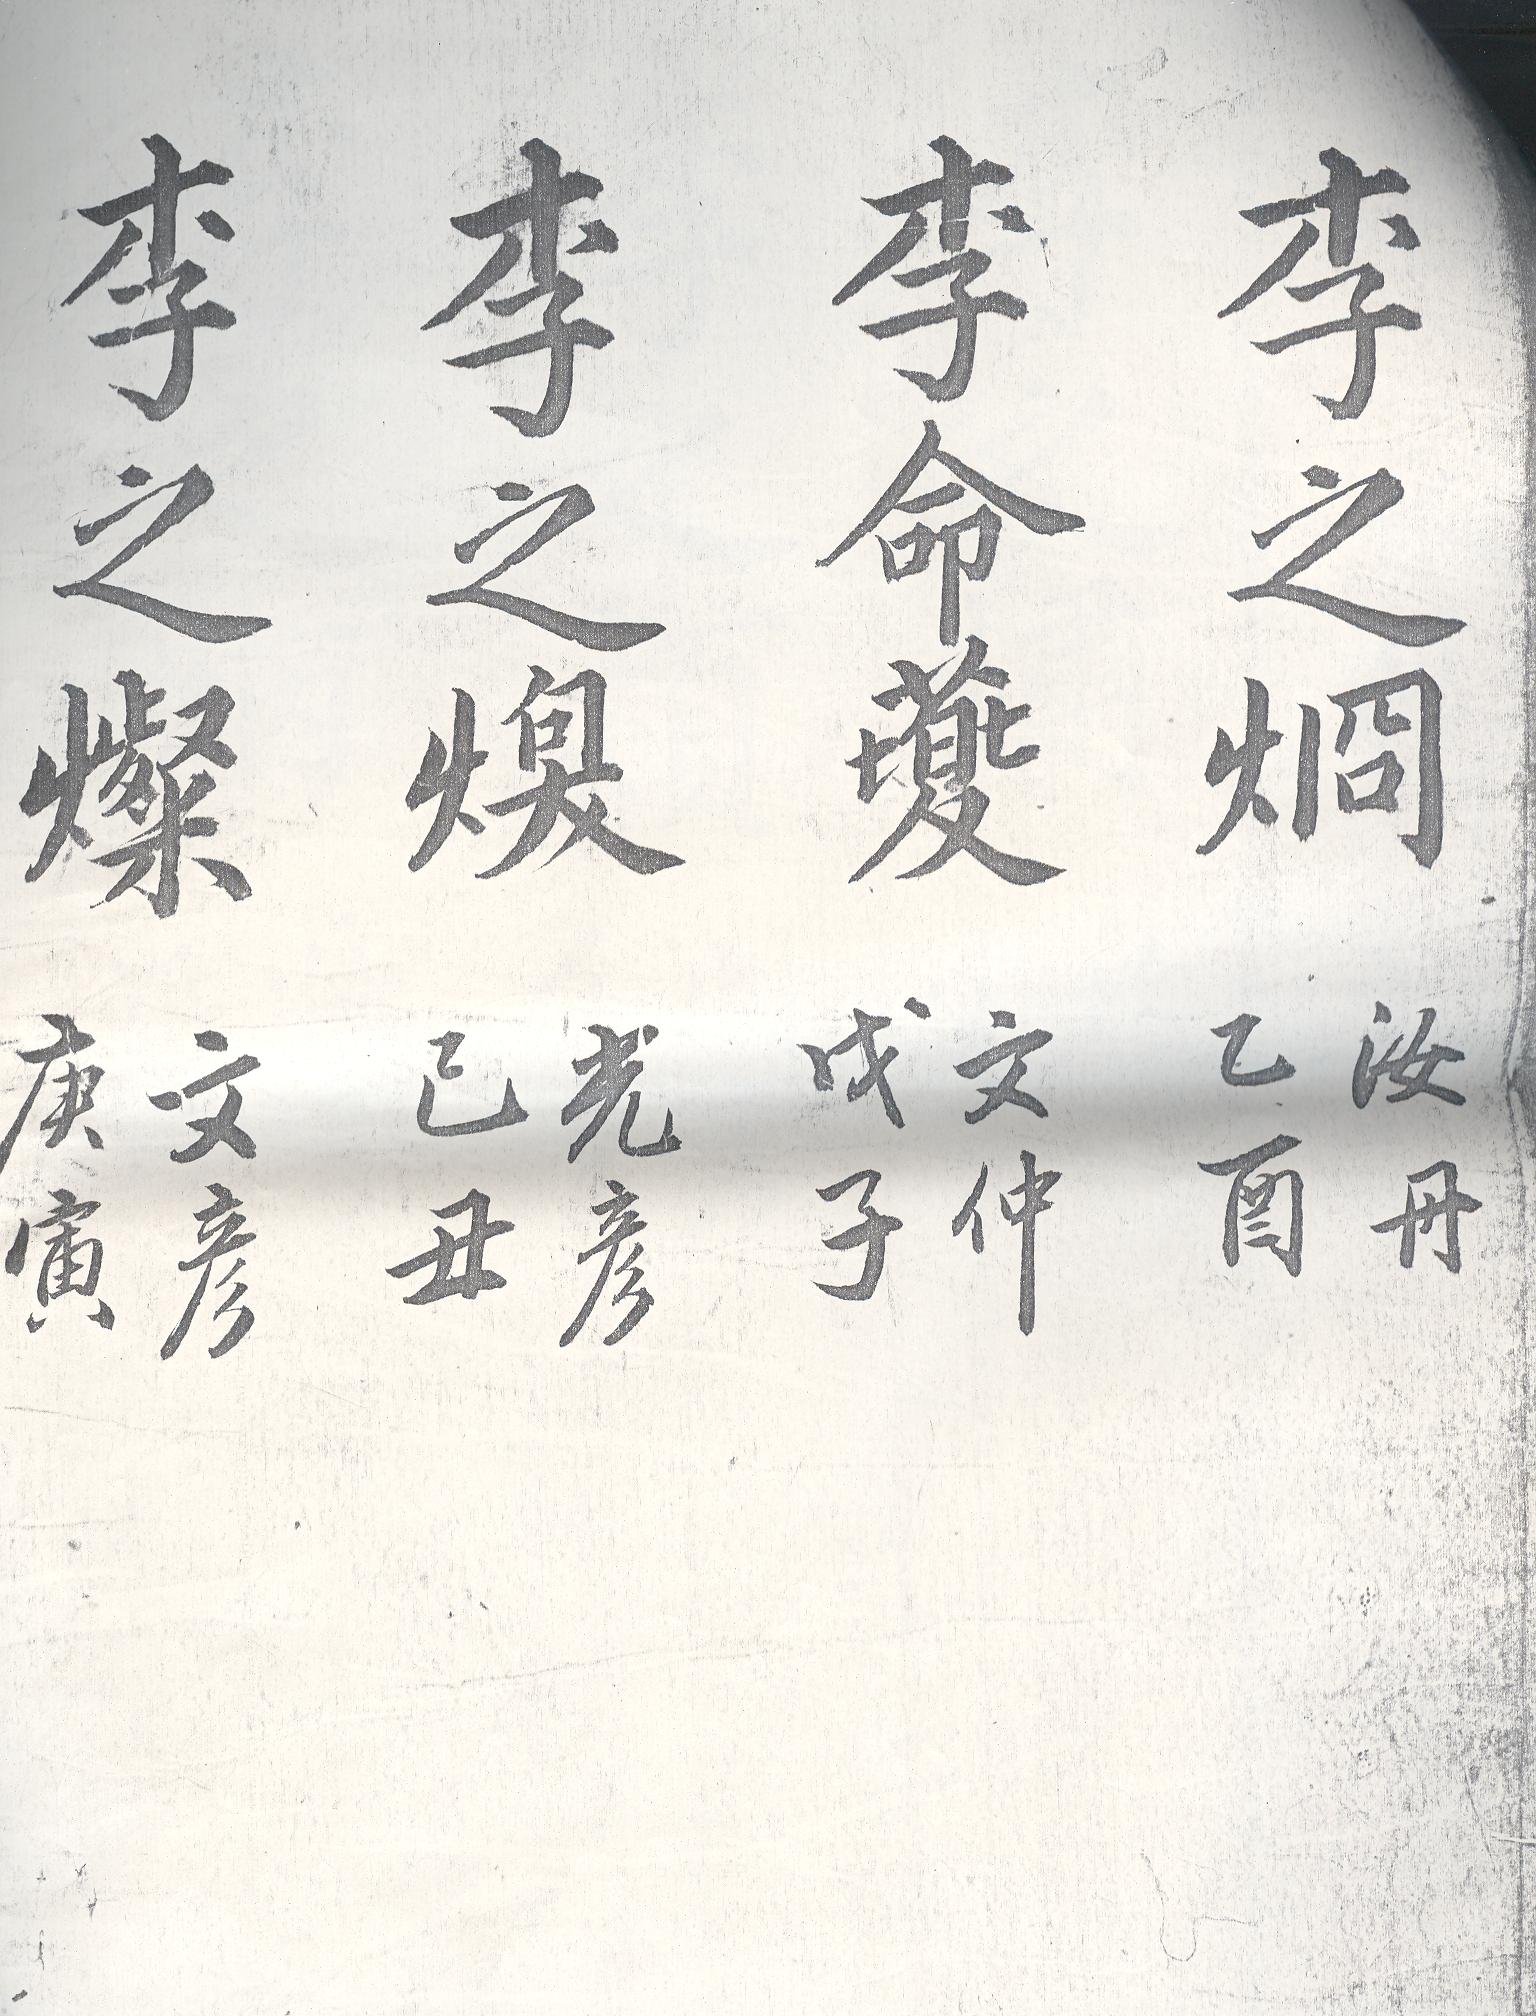 李之烱
汝丹
乙酉
李命蘷
文仲
戊子
李之煥
光彦
己丑
李之燦
文彦
庚寅